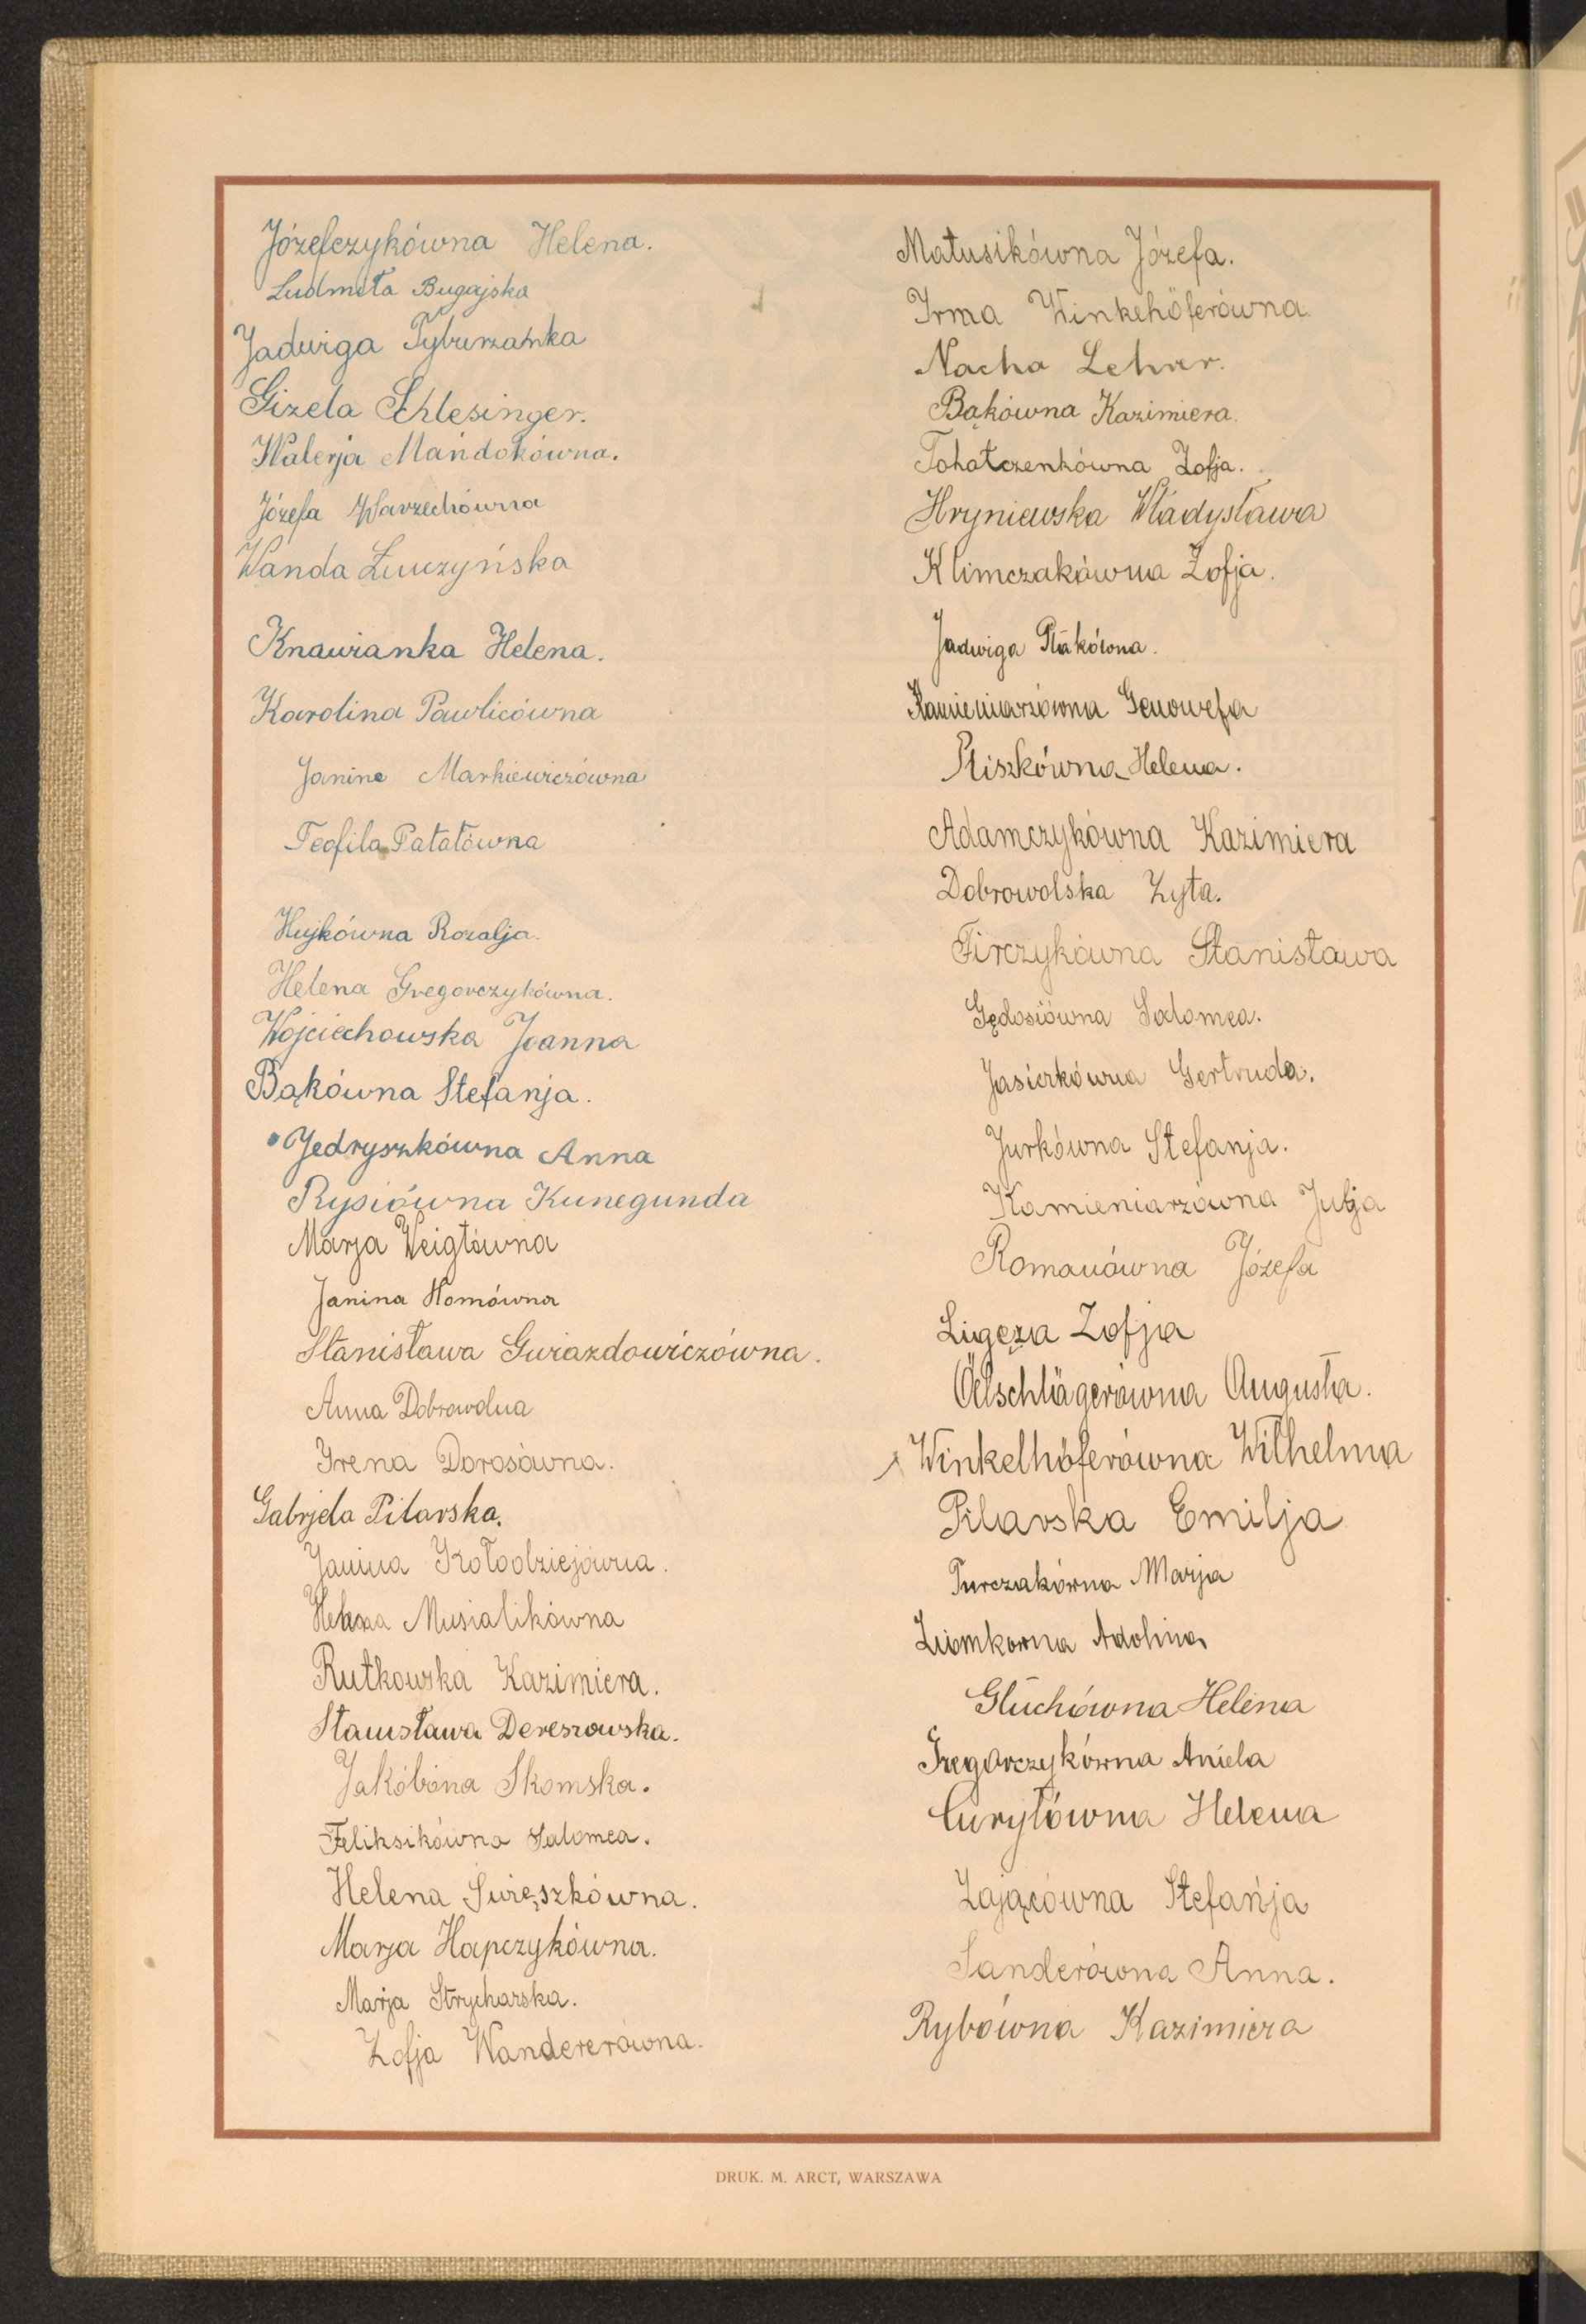 Józefczykówna Helena.
Ludmiła Bugajska
Jadwiga Tyburzanka
Gizela Schlesinger.
Walerja Mańdokówna.
Józefa Warzechówna
Wanda Łuczyńska
Knawianka Helena.
Karolina Pawlicówna
Janina Markiewiczówna
Teofila Patałówna
Hujkówna Rozalja.
Helena Gregorczykówna.
Wojciechowska Joanna
Bąkówna Stefanja.
Jedryszkówna Anna
Rysiówna Kunegunda
Marja Weigłówna
Janina Homówna
Stanisława Gwiazdowiczówna.
Anna Dobrowolna
Irena Dorosówna.
Gabrjela Pilarska.
Janina Kołodziejówna.
Helena Musialikówna
Rutkowska Kazimiera.
Stanisława Dereszowska.
Jakóbina Skomska.
Feliksikówna Salomea.
Helena Świeszkówna.
Marja Hapczykówna.
Marja Strycharska.
Zofja Wandererówna.
Matusikówna Józefa.
Irma Winkehöferówna.
Nacha Lehrer.
Bąkówna Kazimiera.
Tohatczenkówna Zofja.
Hryniewska Władysława
Klimczakówna Zofja.
Jadwiga Ptakówna.
Kamieniarzówna Genowefa
Pliszkówna Helena.
Adamczykówna Kazimiera
Dobrowolska Zyta.
Firczykówna Stanisława
Gędosiówna Salomea.
Jasierkówna Gertruda.
Jurkówna Stefanja.
Kamieniarzówna Julja
Romanówna Józefa
Ligęza Zofja
Öelschlägerówna Augusta.
Winkelhöferówna Wilhelma
Pilarska Emilja
Turczakówna Marja
Ziomkowna Adolina
Głuchówna Helena
Gregorczykówna Aniela
Curyłówna Helena
Zającówna Stefanja
Sanderówna Anna.
Rybówna Kazimiera
DRUK. M. ARCT, WARSZAWA